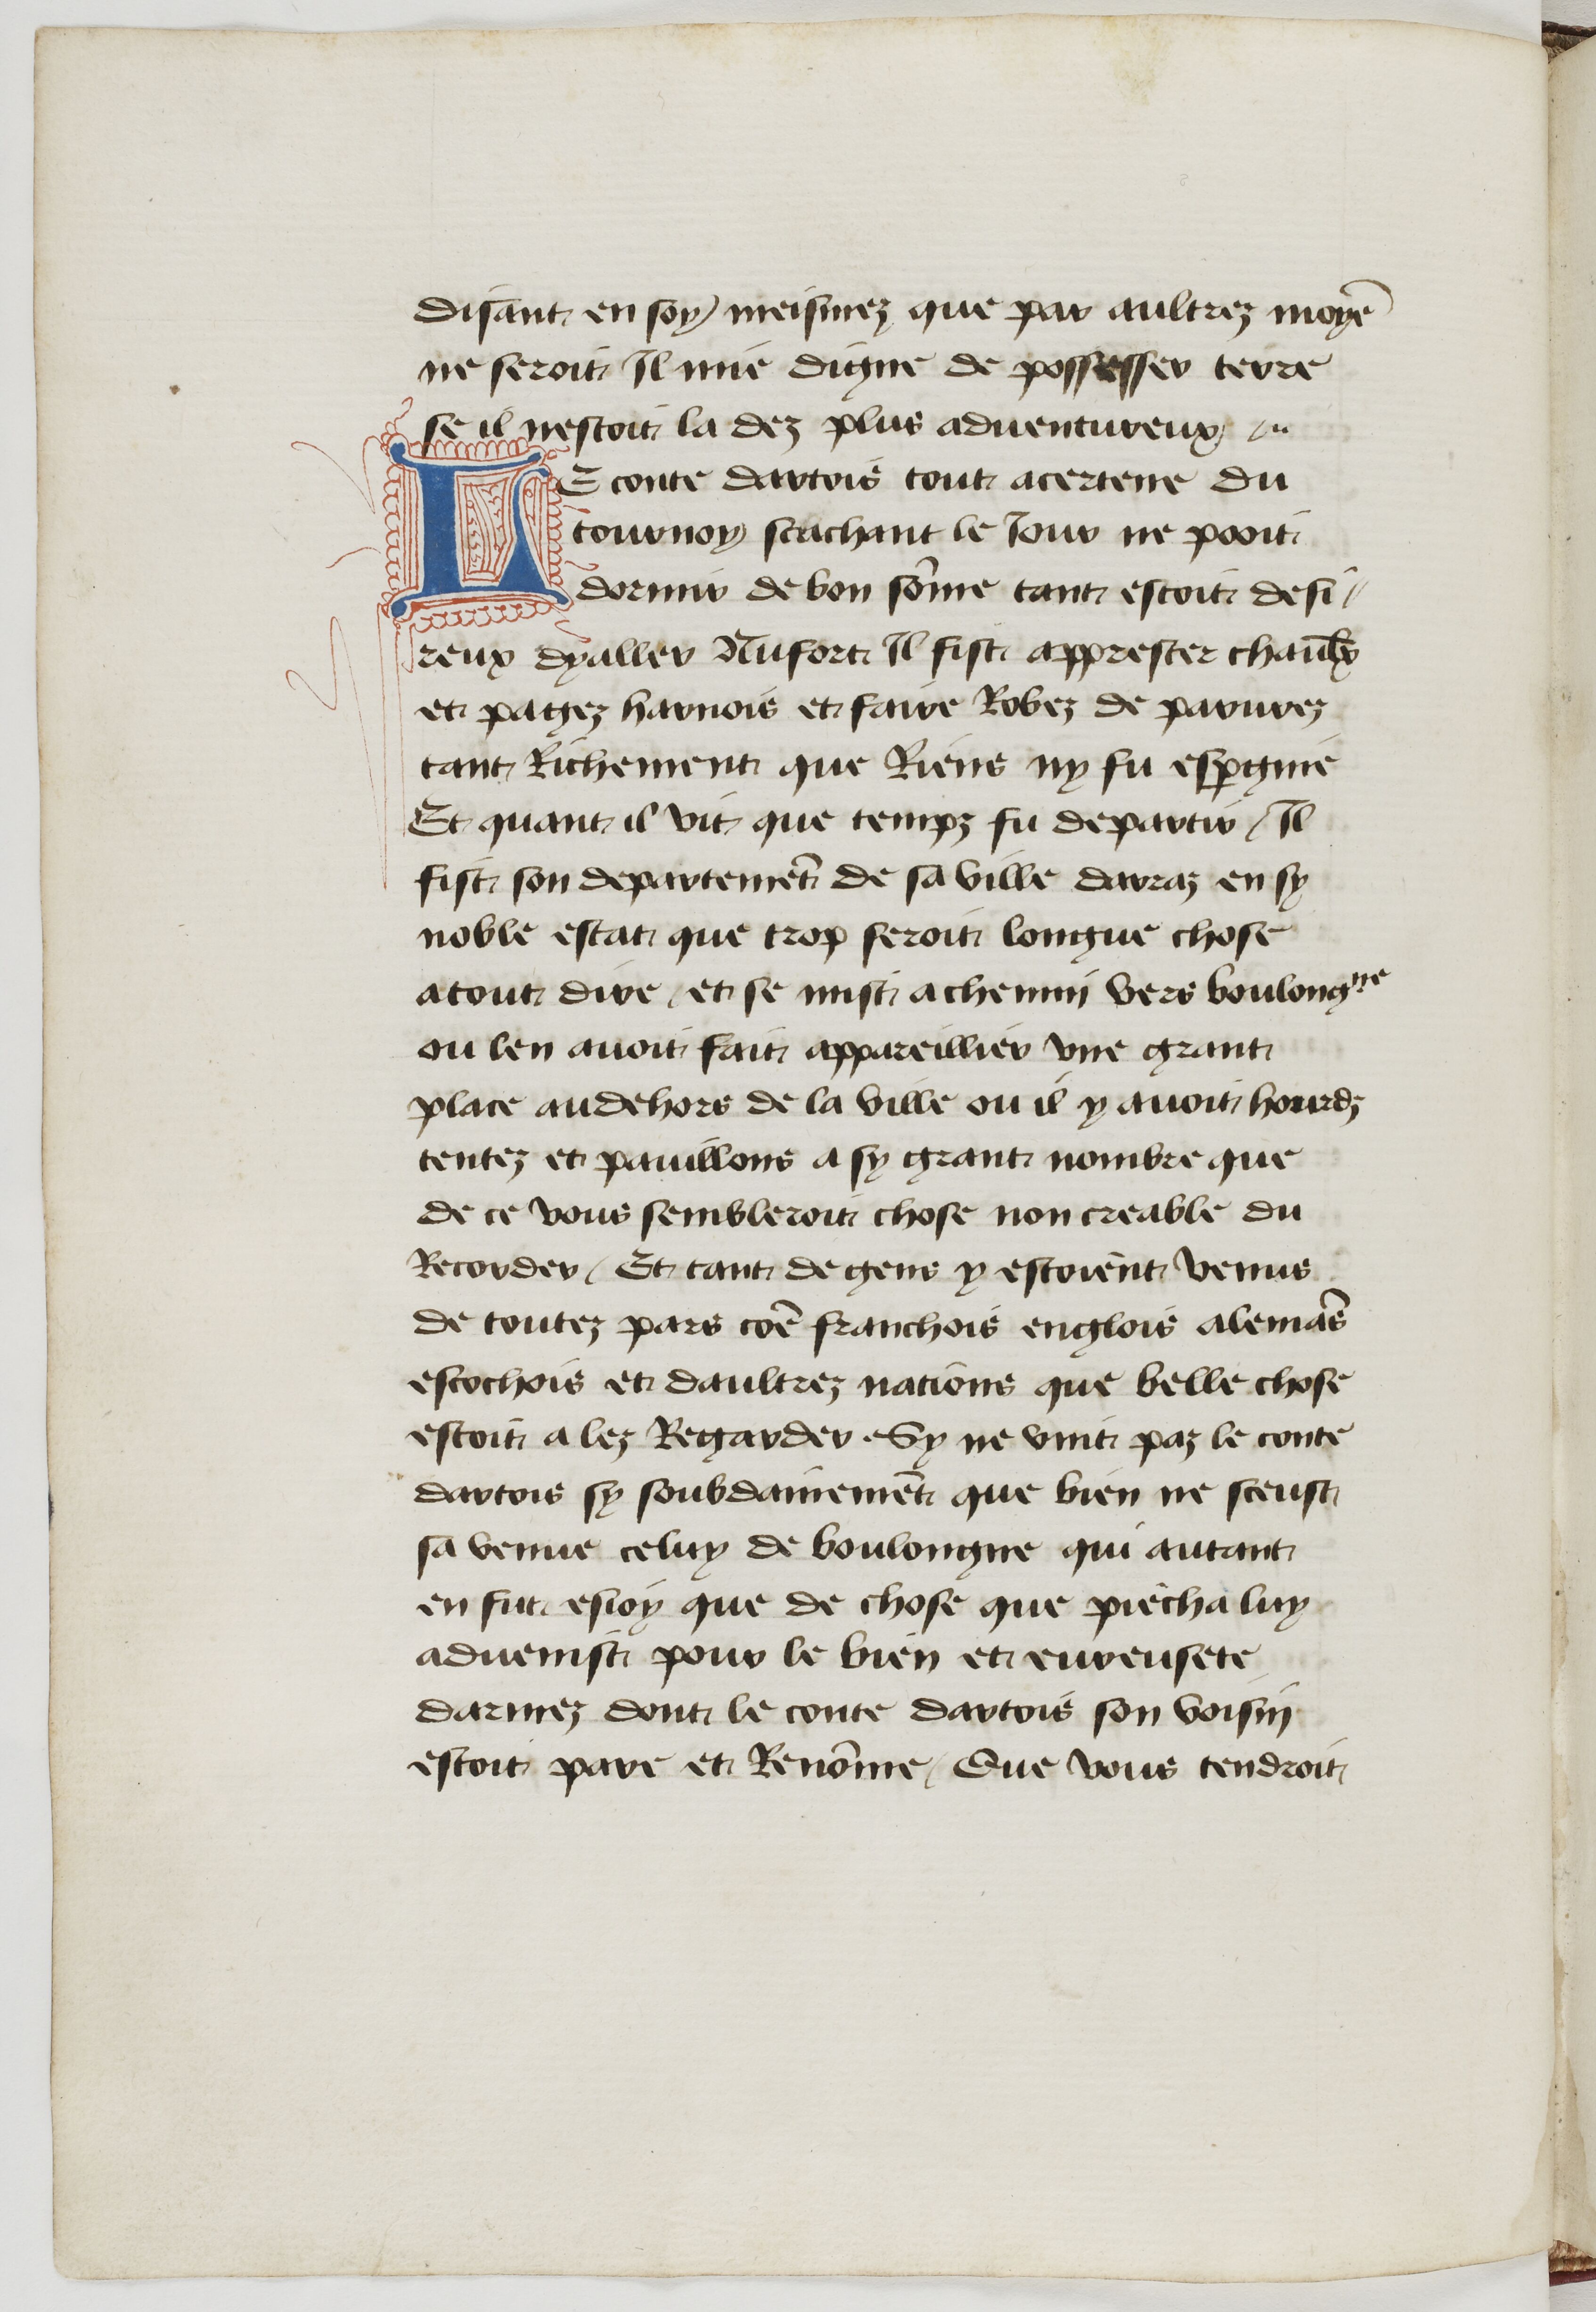 disant en soy meismez que par aultrez moyē
ne seroit Il mie digne de possesser terre
se il nestoit la dez plus aduentureux /..
LE conte dartois tout acertene du
tournoy scachant le Iour ne pooit
dormir de bon sōme tant estoit desi/
reux dyaller Au fort Il fist apprester
et pagez harnois et faire Robez de parurez
tant Richement que Riens ny fu esp̱gnie
Et quant il vit que tempz fu departir / Il
fist son departemēt de sa ville darraz en sy
noble estat que trop seroit longue chose
atout dire / et se mist achemin vers boulongne
ou len auoit fait appareillier vne grant
place audehors de la ville ou il y auoit hourdz
tentez et pauillons a sy grant nombre que
de ce vous sembleroit chose non creable du
Recorder / Et tant de gens y estoient venus
de toutez pars cōe franchois englois alemās
escochois et daultrez nations que belle chose
estoit a lez Regarder . Sy ne vint paz le conte
dartois sy soubdainemēt que bien ne sceust
sa venue celuy de boulongne qui autant
en fut esioy que de chose que piecha luy
aduenist pour le bien et eureusete
darmez dont le conte dartois son voisin
estoit pare et Renōme / Que vous tendroit